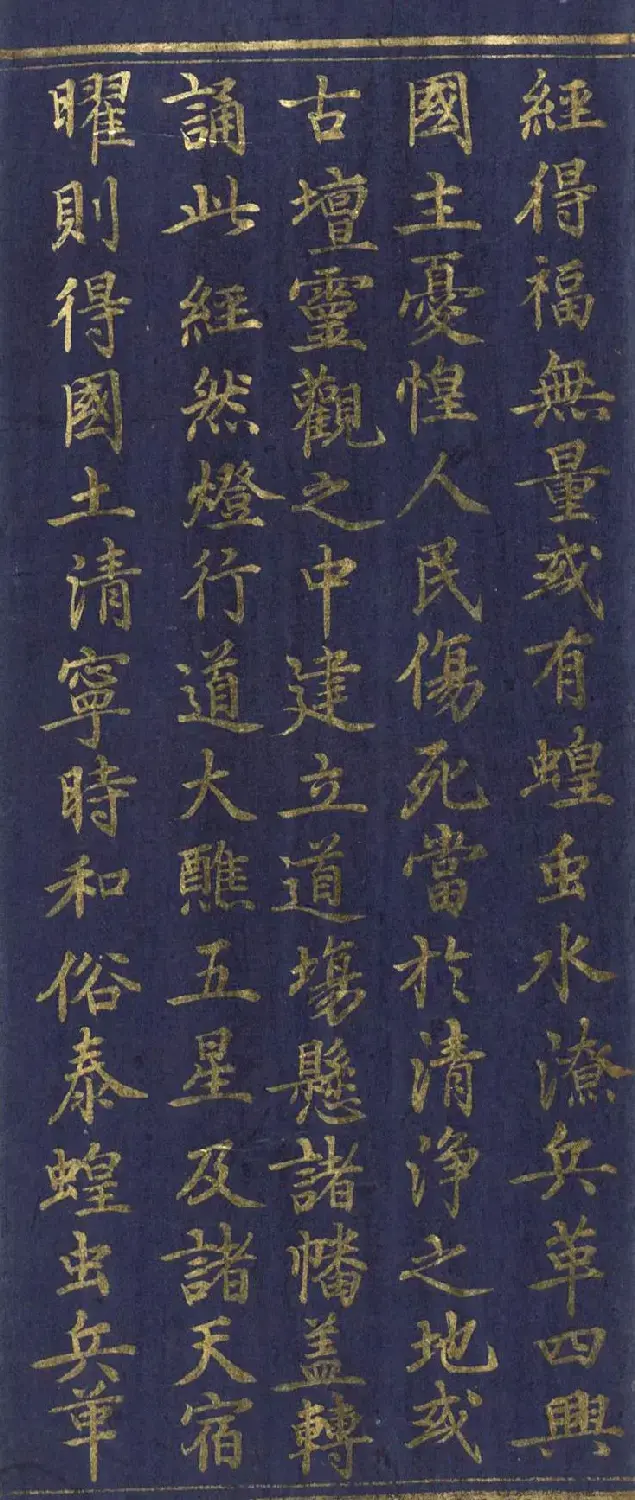 經得福無量或有蝗虫水潦兵革四興
國主憂惶人民傷死當於清淨之地或
古壇靈觀之中建立道塲懸諸幡盖轉
誦此經然燈行道大醮五星及諸天宿
曜則得國土清寧時和俗泰蝗虫兵革